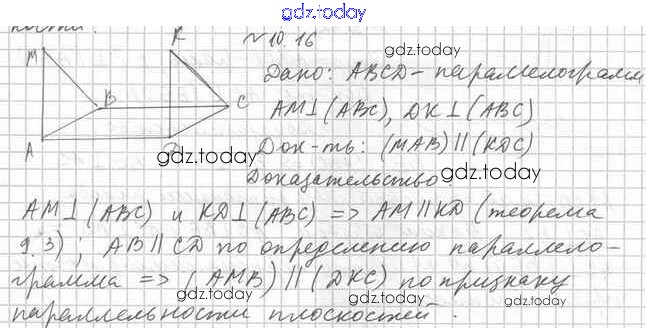 gdz.today
ности.
№ 10.16
gdz.today
M
K
Дано: ABCD - параллелограмм
B
C
AM⊥(ABC), DK⊥(ABC)
gdz.today
A
D
Док-ть: (MAB) || (KDC)
gdz.today
gdz.today
Доказательство:
AM⊥(ABC) и KD⊥(ABC) => AM || KD (теорема
9.3); AB || CD по определению паралле-
gdz.today
лограмма => (AMB) || (DKC) по признаку
gdz.today
gdz.today
параллельности плоскостей.